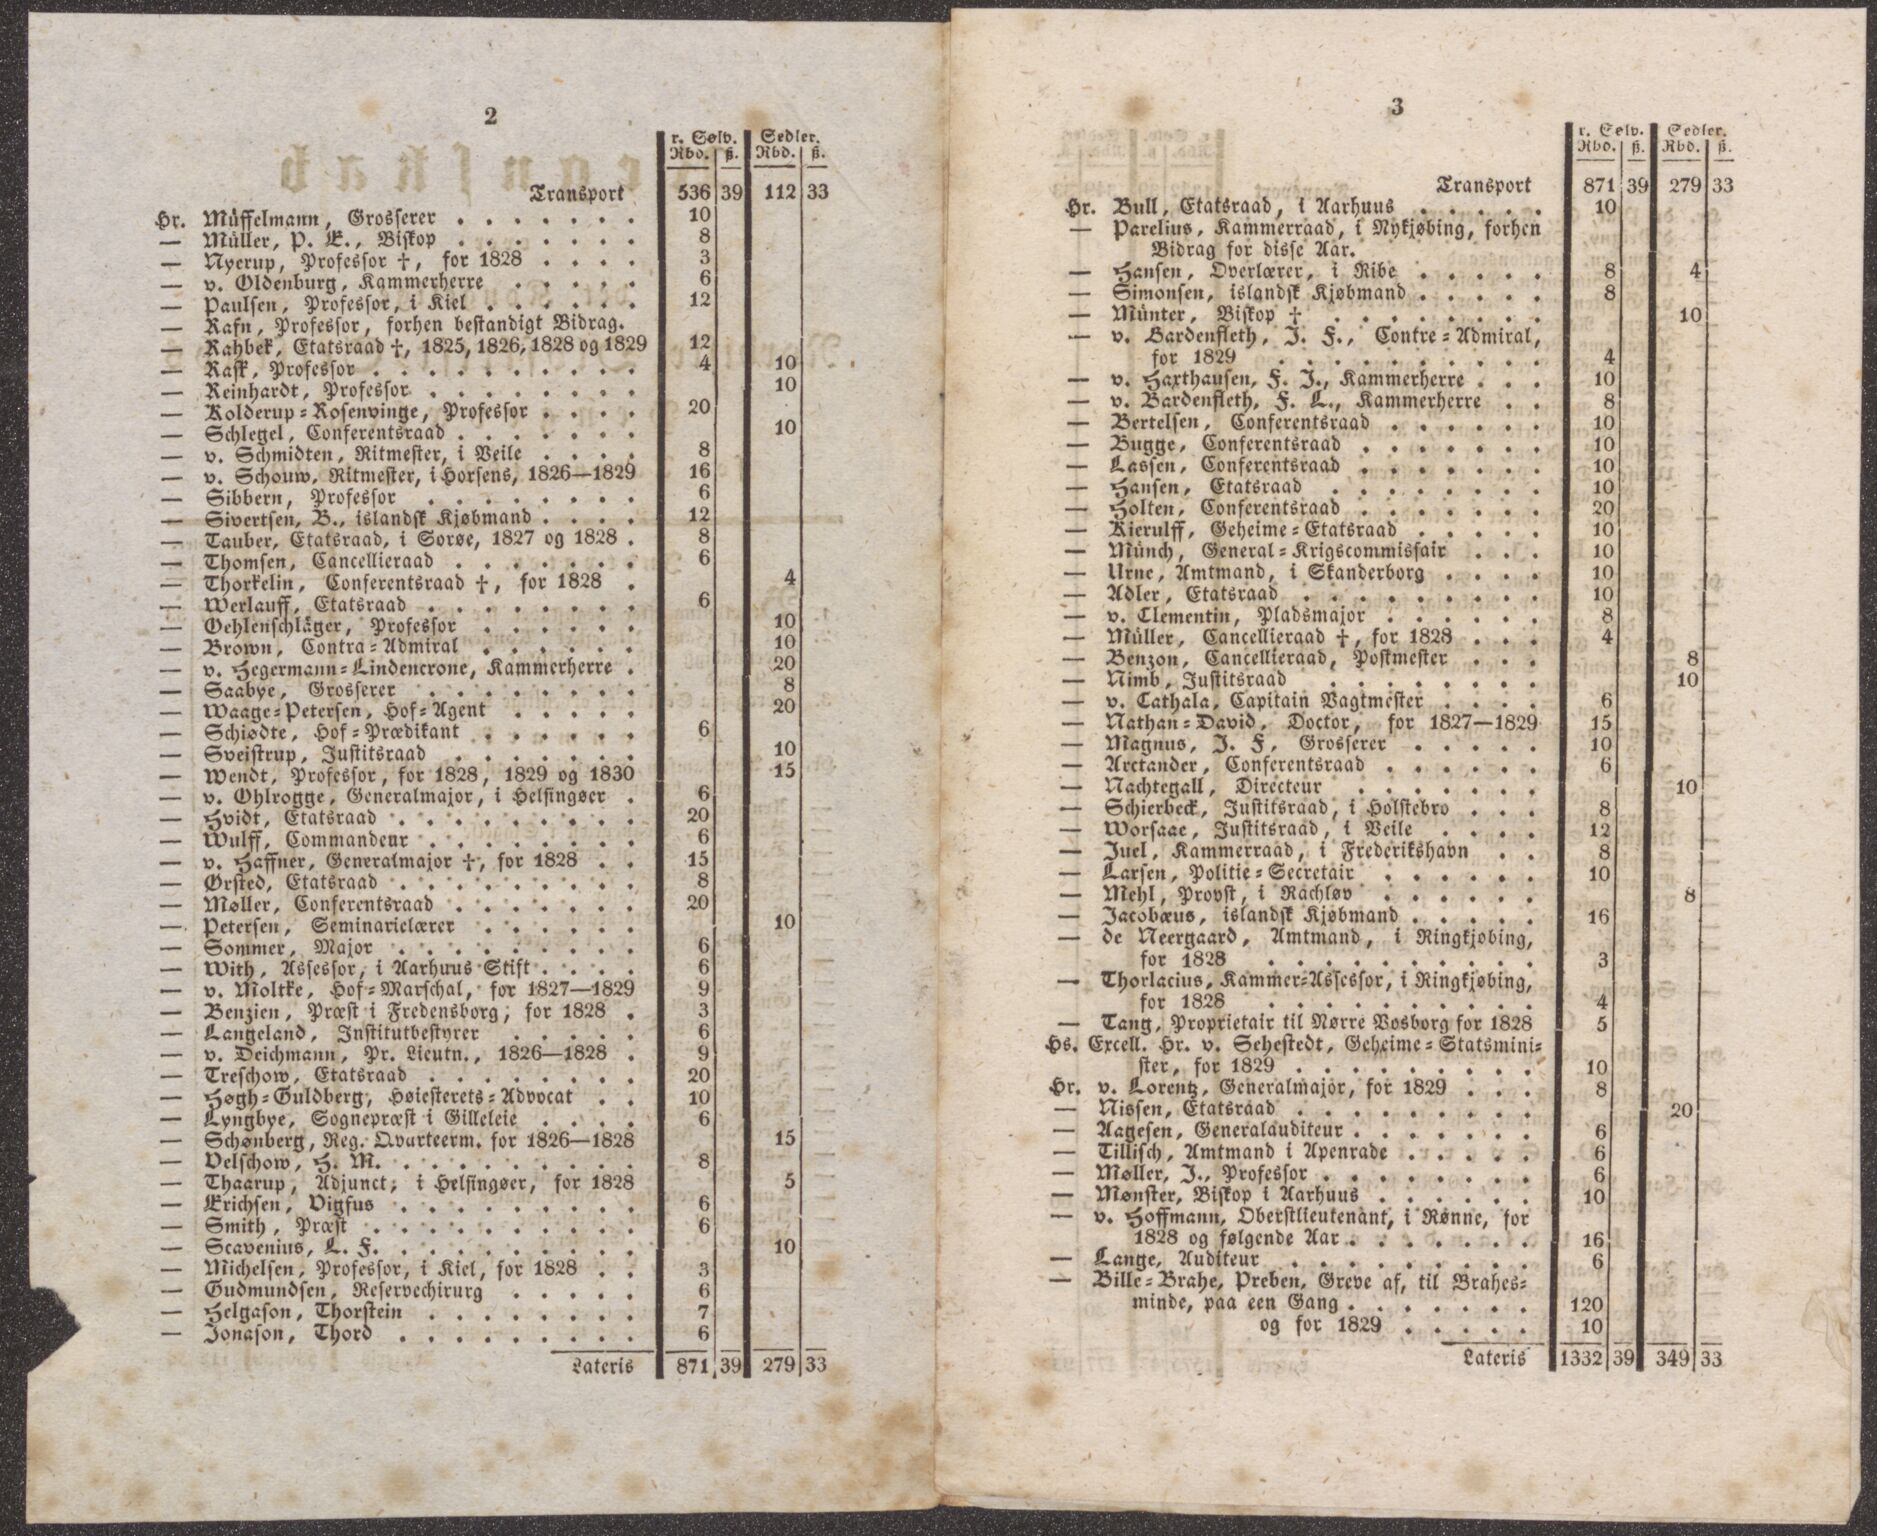 2
r. Sølv. Sedler.
Rbd. ß. Rbd. ß.
Transport 536 39 112 33
Hr. Müffelmann, Grosserer . . . . . . . 10
— Müller, P. E., Biskop . . . . . . . 8
— Nyerup, Professor †, for 1828 . . . . 3
— v. Oldenburg, Kammerherre . . . . . 6
— Paulsen, Professor, i Kiel . . . . . . 12
— Rafn, Professor, forhen bestandigt Bidrag.
— Rahbek, Etatsraad †, 1825, 1826, 1828 og 1829 12
— Rask, Professor . . . . . . . . . . 4 10
— Reinhardt, Professor . . . . . . . . 10
— Kolderup=Rosenvinge, Professor . . . . 20
— Schlegel, Conferentsraad . . . . . . . 10
— v. Schmidten, Ritmester, i Veile . . . . 8
— v. Schouw, Ritmester, i Horsens, 1826—1829 16
— Sibbern, Professor . . . . . . . . 6
— Sivertsen, B., islandsk Kjøbmand . . . . 12
— Tauber, Etatsraad, i Sorøe, 1827 og 1828 . 8
— Thomsen, Cancellieraad . . . . . . . 6
— Thorkelin, Conferentsraad †, for 1828 . 4
— Werlauff, Etatsraad . . . . . . . . 6
— Oehlenschläger, Professor . . . . . . 10
— Brown, Contra=Admiral . . . . . . 10
— v. Hegermann=Lindencrone, Kammerherre . 20
— Saabye, Grosserer . . . . . . . . 8
— Waage=Petersen, Hof=Agent . . . . . 20
— Schiødte, Hof=Prædikant . . . . . . 6
— Sveistrup, Justitsraad . . . . . . . 10
— Wendt, Professor, for 1828, 1829 og 1830 15
— v. Ohlrogge, Generalmajor, i Helsingøer . 6
— Hvidt, Etatsraad . . . . . . . . . 20
— Wulff, Commandeur . . . . . . . . 6
— v. Haffner, Generalmajor †, for 1828 . . 15
— Ørsted, Etatsraad . . . . . . . . . 8
— Møller, Conferentsraad . . . . . . . 20
— Petersen, Seminarielærer . . . . . . 10
— Sommer, Major . . . . . . . . . 6
— With, Assessor, i Aarhuus Stift . . . . 6
— v. Moltke, Hof=Marschal, for 1827—1829 9
— Benzien, Præst i Fredensborg, for 1828 . 3
— Langeland, Institutbestyrer . . . . . 6
— v. Deichmann, Pr. Lieutn., 1826—1828 . 9
— Treschow, Etatsraad . . . . . . . . 20
— Høgh=Guldberg, Høiesterets=Advocat . . 10
— Lyngbye, Sognepræst i Gilleleie . . . . 6
— Schønberg, Reg. Qvarteerm. for 1826—1828 15
— Velschow, H. M. . . . . . . . . . 8
— Thaarup, Adjunct, i Helsingøer, for 1828 5
— Erichsen, Vigfus . . . . . . . . . 6
— Smith, Præst . . . . . . . . . . 6
— Scavenius, L. F. . . . . . . . . . 10
— Michelsen, Professor, i Kiel, for 1828 . . 3
— Gudmundsen, Reservechirurg . . . . . 6
— Helgason, Thorstein . . . . . . . . 7
— Jonason, Thord . . . . . . . . . 6
Lateris 871 39 279 33
3
r. Sølv. Sedler.
Rbd. ß. Rbd. ß.
Transport 871 39 279 33
Hr. Bull, Etatsraad, i Aarhuus . . . . . 10
— Parelius, Kammerraad, i Nykjøbing, forhen
Bidrag for disse Aar.
— Hansen, Overlærer, i Ribe . . . . . 8 4
— Simonsen, islandsk Kjøbmand . . . . . 8
— Münter, Biskop † . . . . . . . . 10
— v. Bardenfleth, J. F., Contre=Admiral,
for 1829 . . . . . . . . . . 4
— v. Harthausen, F. J., Kammerherre . . . 10
— v. Bardenfleth, F. L., Kammerherre . . 8
— Bertelsen, Conferentsraad . . . . . . 10
— Bugge, Conferentsraad . . . . . . . 10
— Lassen, Conferentsraad . . . . . . . 10
— Hansen, Etatsraad . . . . . . . . 10
— Holten, Conferentsraad . . . . . . . 20
— Kierulff, Geheime=Etatsraad . . . . . 10
— Münch, General=Krigscommissair . . . 10
— Urne, Amtmand, i Skanderborg . . . . 10
— Adler, Etatsraad . . . . . . . . . 10
— v. Clementin, Pladsmajor . . . . . . 8
— Müller, Cancellieraad †, for 1828 . . . 4
— Benzon, Cancellieraad, Postmester . . . 8
— Nimb, Justitsraad . . . . . . . . 10
— v. Cathala, Capitain Vagtmester . . . . 6
— Nathan=David, Doctor, for 1827—1829 15
— Magnus, J. F, Grosserer . . . . . 10
— Arctander, Conferentsraad . . . . . . 6
— Nachtegall, Directeur . . . . . . . 10
— Schierbeck, Justitsraad, i Holstebro . . . 8
— Worsaae, Justitsraad, i Veile . . . . 12
— Juel, Kammerraad, i Frederikshavn . . 8
— Larsen, Politie=Secretair . . . . . . 10
— Mehl, Provst, i Rachløv . . . . . . 8
— Jacobæus, islandsk Kjøbmand . . . . . 16
— de Neergaard, Amtmand, i Ringkjøbing,
for 1828 . . . . . . . . . . 3
— Thorlacius, Kammer=Assessor, i Ringkjøbing,
for 1828 . . . . . . . . . . 4
— Tang, Proprietair til Nørre Vosborg for 1828 5
Hs. Excell. Hr. v. Sehestedt, Geheime=Statsmini=
ster, for 1829 . . . . . . . . . 10
Hr. v. Lorentz, Generalmajor, for 1829 . . . 8
— Nissen, Etatsraad . . . . . . . . . 20
— Aagesen, Generalauditeur . . . . . . . 6
— Tillisch, Amtmand i Apenrade . . . . . 6
— Møller, J., Professor . . . . . . . . 6
— Mønster, Biskop i Aarhuus . . . . . . 10
— v. Hoffmann, Oberstlieutenant, i Rønne, for
1828 og følgende Aar . . . . . . . 16
— Lange, Auditeur . . . . . . . . . 6
— Bille=Brahe, Preben, Greve af, til Brahes=
minde, paa een Gang . . . . . . . 120
og for 1829 . . . . . 10
Lateris 1332 39 349 33